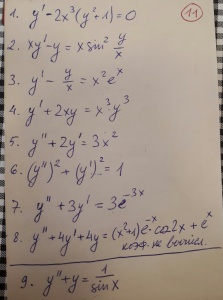 11
1. y' - 2x³(y²+1) = 0
2. xy' - y = x sin² y/x
3. y' - y/x = x²eˣ
4. y' + 2xy = x³y³
5. y'' + 2y' = 3x²
6. (y'')² + (y')² = 1
7. y'' + 3y' = 3e⁻³ˣ
8. y'' + 4y' + 4y = (x²+1)e⁻ˣ cos2x + eˣ
коэфф. не вычисл.
9. y'' + y = 1/sin x